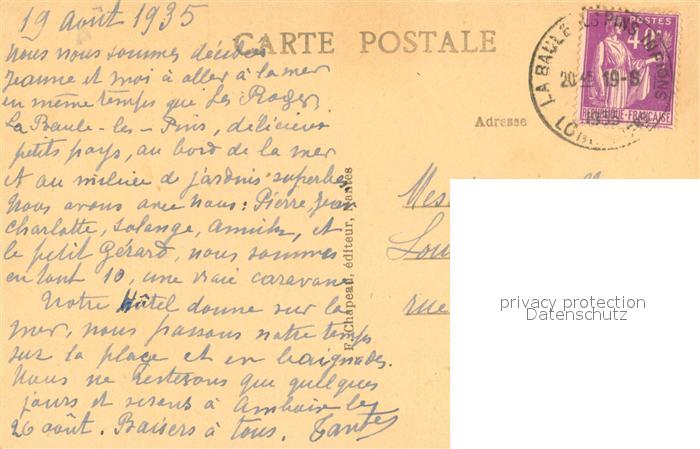 19 août 1935
Nous nous sommes décidées
Jeanne et moi à aller à la mer
en même temps que Les Roger
La Baule-les-Pins, délicieux
petit pays, au bord de la mer
et au milieu de jardins superbes
Nous avons avec nous : Pierre, Jean
Charlotte, Solange, Annick, et
le petit Gérard, nous sommes
en tout 10, une vraie caravane
Notre Hôtel donne sur la
mer, nous passons notre temps
sur la plage et en baignades.
Nous ne resterons que quelques
jours et serons à Amboise le
26 août. Baisers à tous. Tantes
CARTE POSTALE
Adresse
F. Chapeau, éditeur, Nantes
LA BAULE LES PINS
20 19-8
1935
POSTES
40c
REPUBLIQUE FRANÇAISE
rue
privacy protection
Datenschutz